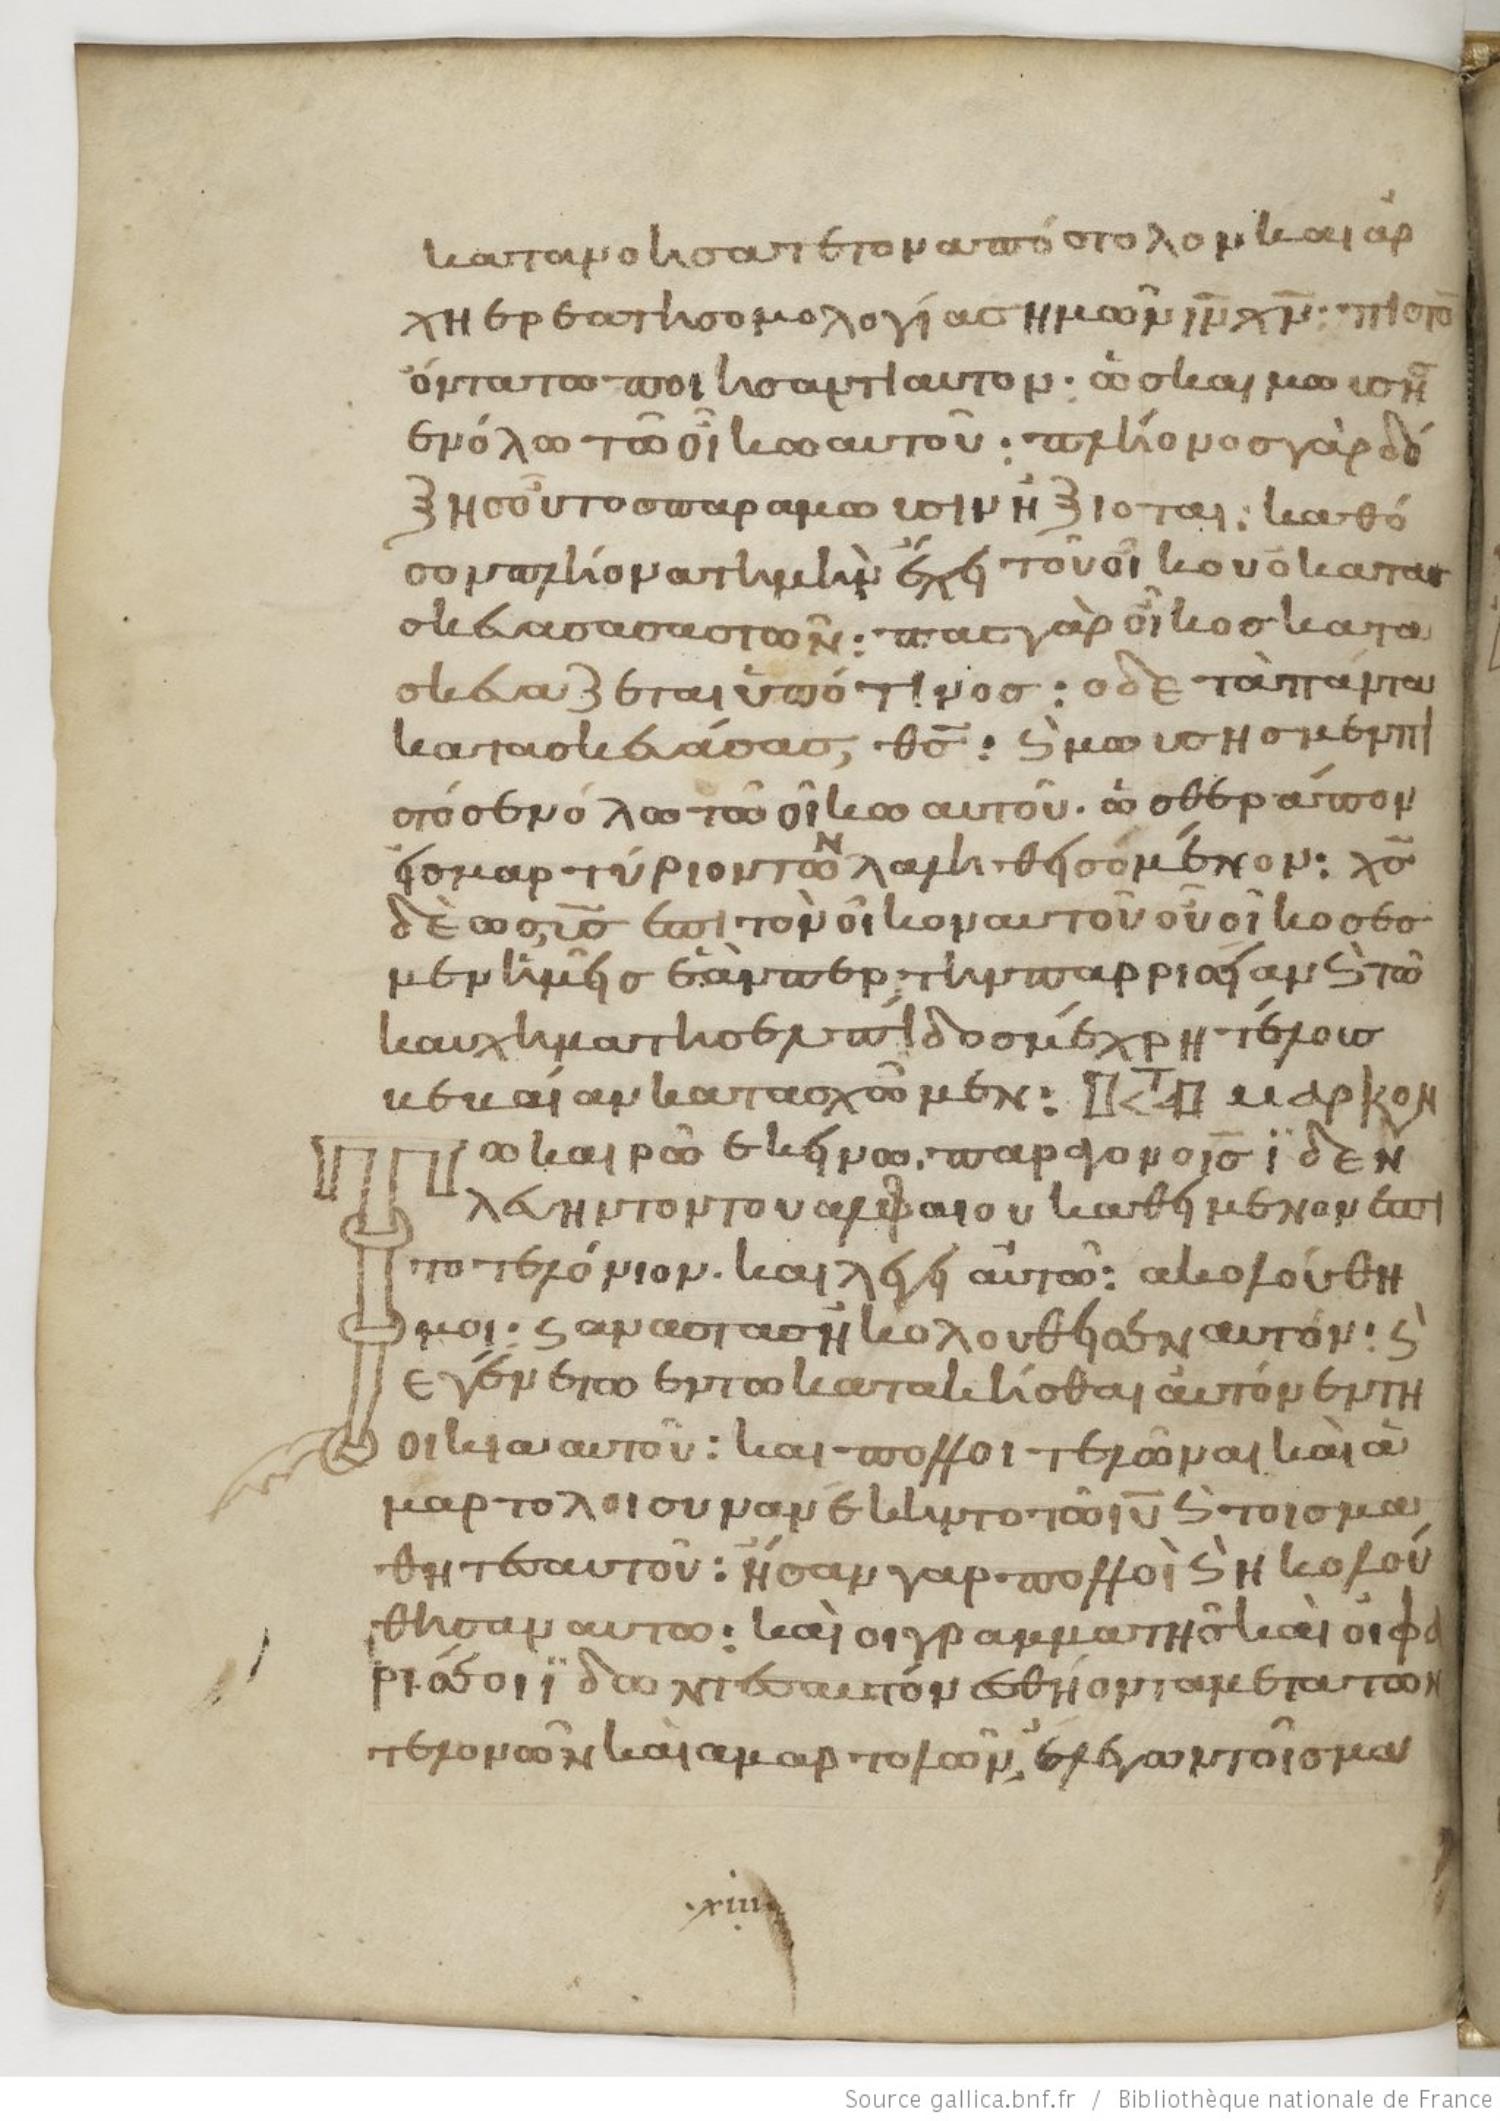 κατανοησατε τον απόστολον και ἀρ
χηερεα της ομολογίας ημων ιν χν: πιστο
όντα τω ποιησαντι αυτον· ὡς και μωυση
εν όλω τῶ οἴκω αυτοῦ: πληονος γὰρ δό
ξης οὗτος παρα μωυσιν ἠξιοται: καθό
σον πληονα την μην έχη τοῦ οἴκου ο κατα
σκευασας αστων: πας γὰρ οἶκος κατα
σκευαζεται ὑπό τινος: ο δε τὰ πάντα
κατασκευάσας, θς: ϗ μωυσης μεν πι
στός εν όλω τῶ οἴκω αυτοῦ· ὡς θεράπον
ἐς μαρτύριον τῶν λαληθησομένον: χς
δὲ ως ις επι τὸν οἶκον αυτοῦ οὗ οἶκος εσ
μεν ημῆς εάνπερ την παρρισήαν ϗ τῶ
καυχηματης ελπίδος μέχρη τέλους
βεβαίαν κατασχῶμεν: μαρκον
Τω καιρῶ εκήνω, παραγον ο ις ϊδεν
λευηντον του αλφαιου καθημενον επι
το τελόνιον· και λέγη αὐτῶ: ακολούθη
μοι: ϗ αναστας ηκολουθησεν αυτόν: ϗ
εγένετω εν τω κατακλίσθαι αὐτόν εν τη
οικια αυτοῦ: και πολλοι τελῶναι καὶ ἁ
μαρτολοι συνανέκηντο τῶ ιυ ϗ τοις μα
θητες αυτοῦ: ἦσαν γαρ πολλοὶ ϗ ηκολού
θησαν αυτω: καὶ οι γραμματης καὶ οἱ φα
ρισέοι ϊδωντες αυτόν εσθήοντα μετα των
τελονῶν καὶ αμαρτολῶν, έλεγων τοῖς μα
·xiii·
Source gallica.bnf.fr / Bibliothèque nationale de France